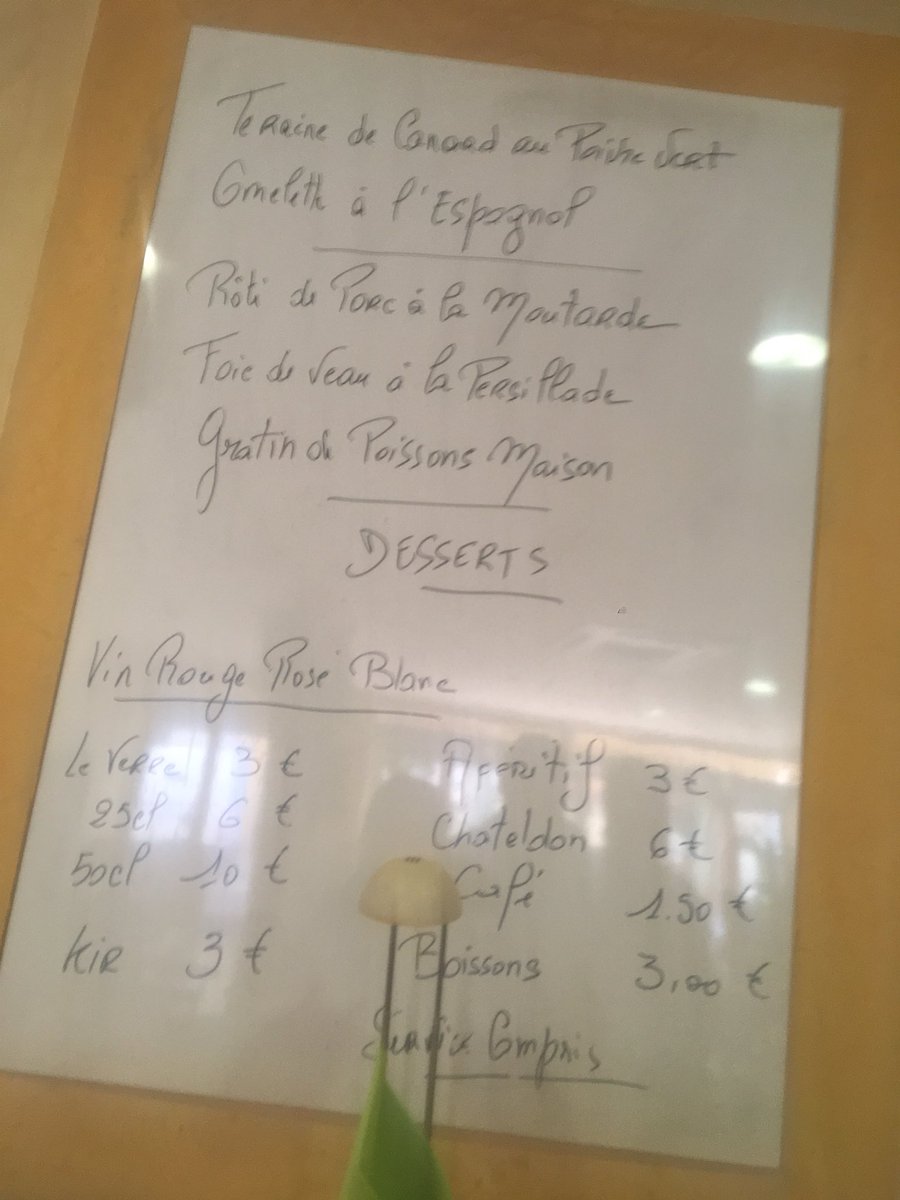 Terrine de Canard au Poivre Vert
Omelette à l'Espagnol
Rôti de Porc à la Moutarde
Foie de Veau à la Persillade
Gratin de Poissons Maison
DESSERTS
Vin Rouge Rosé Blanc
Le Verre 3 € Apéritif 3 €
25cl 6 € Chateldon 6 €
50cl 10 € Café 1.50 €
Kir 3 € Boissons 3,00 €
Service Compris